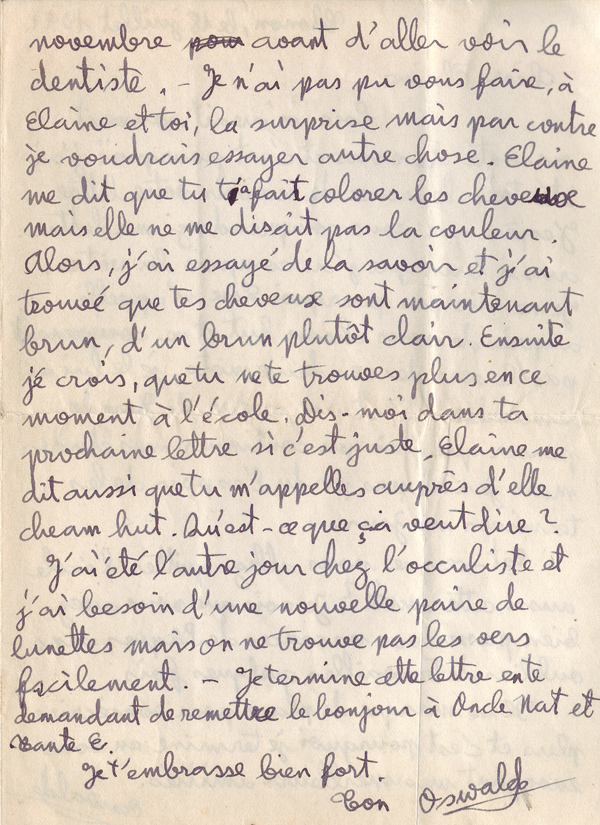 novembre pour avant d'aller voir le
dentiste. - Je n'ai pas pu vous faire, à
Elaine et toi, la surprise mais par contre
je voudrais essayer autre chose. Elaine
me dit que tu t'a fait colorer les cheveux
mais elle ne me disait pas la couleur.
Alors, j'ai essayé de la savoir et j'ai
trouvé que tes cheveux sont maintenant
brun, d'un brun plutôt clair. Ensuite
jé crois, que tu ne te trouves plus en ce
moment à l'école. Dis-moi dans ta
prochaine lettre si c'est juste, Elaine me
dit aussi que tu m'appelles auprès d'elle
cheam hut. Qu'est-ce que ça veut dire ?
J'ai été l'autre jour chez l'occuliste et
j'ai besoin d'une nouvelle paire de
lunettes mais on ne trouve pas les vers
facilement. - Je termine cette lettre en te
demandant de remettre le bonjour à Oncle Nat et
tante E.
Je t'embrasse bien fort.
Ton Oswald